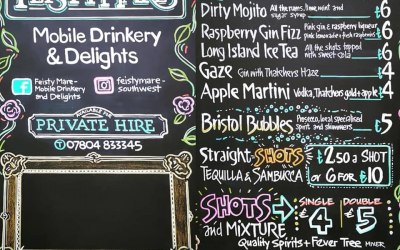 Mobile Drinkery
& Delights
Feisty Mare-
Mobile Drinkery
and Delights
feistymare-
southwest
AVAILABLE FOR
PRIVATE HIRE
07804 833345
Dirty Mojito All the rums, lime, mint and sugar syrup £6
Raspberry Gin Fizz Pink gin & raspberry liqueur, pink lemonade + fresh raspberries £6
Long Island Ice Tea All the shots topped with sweet cola £6
Gaze Gin with Thatchers Haze £4
Apple Martini Vodka, Thatchers gold + apple £4
Bristol Bubbles Prosecco, local specialised spirit and shimmers £5
Straight SHOTS
TEQUILLA & SAMBUCCA
£2.50 a SHOT
or 6 FOR £10
SHOTS
and MIXTURE
SINGLE
£4
DOUBLE
£5
Quality Spirits + Fever Tree MIXER